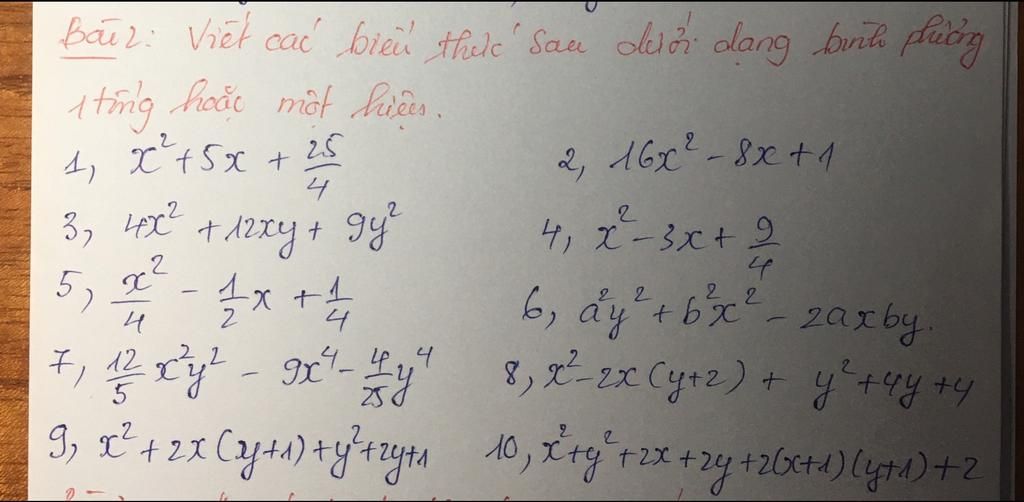 Bài 2: Viết các biểu thức sau dưới dạng bình phương
1 tổng hoặc một hiệu.
1, x² + 5x + 25/4 2, 16x² - 8x + 1
3, 4x² + 12xy + 9y² 4, x² - 3x + 9/4
5, x²/4 - 1/2 x + 1/4 6, a²y² + b²x² - 2axby.
7, 12/5 x²y² - 9x⁴ - 4/25 y⁴ 8, x² - 2x(y+2) + y² + 4y + 4
9, x² + 2x(y+1) + y² + 2y + 1 10, x² + y² + 2x + 2y + 2(x+1)(y+1) + 2